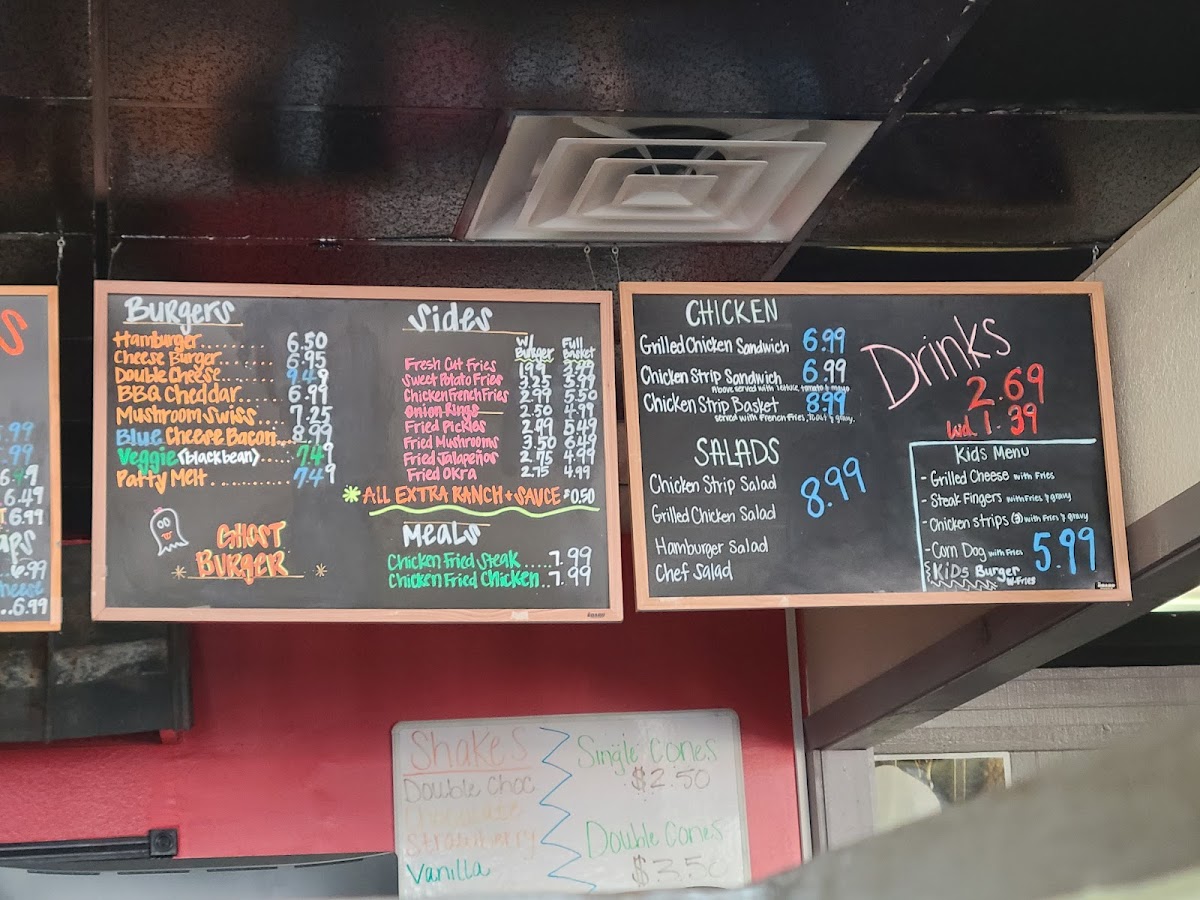 S
.99
.99
6.49
6.99
APS
6.99
..6.99
Burgers
Hamburger........ 6.50
Cheese Burger....... 6.95
Double Cheese...... 9.49
BBQ Cheddar...... 6.99
Mushroom Swiss... 7.25
Blue Cheese Bacon... 8.99
Veggie (blackbean)..... 7.49
Patty Melt............ 7.49
Ghost
Burger
Sides
w/ Burger Full Basket
Fresh Cut Fries 1.99 3.99
Sweet Potato Fries 3.25 5.99
Chicken French Fries 2.99 5.50
Onion Rings 2.50 4.99
Fried Pickles 2.99 5.49
Fried Mushrooms 3.50 6.49
Fried Jalapeños 2.75 4.99
Fried Okra 2.75 4.99
ALL EXTRA RANCH + SAUCE $0.50
Meals
Chicken Fried Steak....7.99
Chicken Fried Chicken...7.99
CHICKEN
Grilled Chicken Sandwich 6.99
Chicken Strip Sandwich 6.99
Above served with lettuce, tomato & mayo
Chicken Strip Basket 8.99
served with French Fries, Toast & gravy.
SALADS
Chicken Strip Salad
Grilled Chicken Salad
8.99
Hamburger Salad
Chef Salad
Drinks
2.69
kid 1.39
Kids Menu
- Grilled Cheese with Fries
- Steak Fingers with Fries & gravy
- Chicken strips (3) with Fries & gravy
- Corn Dog with Fries
5.99
KiDs Burger
w-Fries
Shakes
Double Choc
Chocolate
Strawberry
Vanilla
Single Cones
$2.50
Double Cones
$3.50